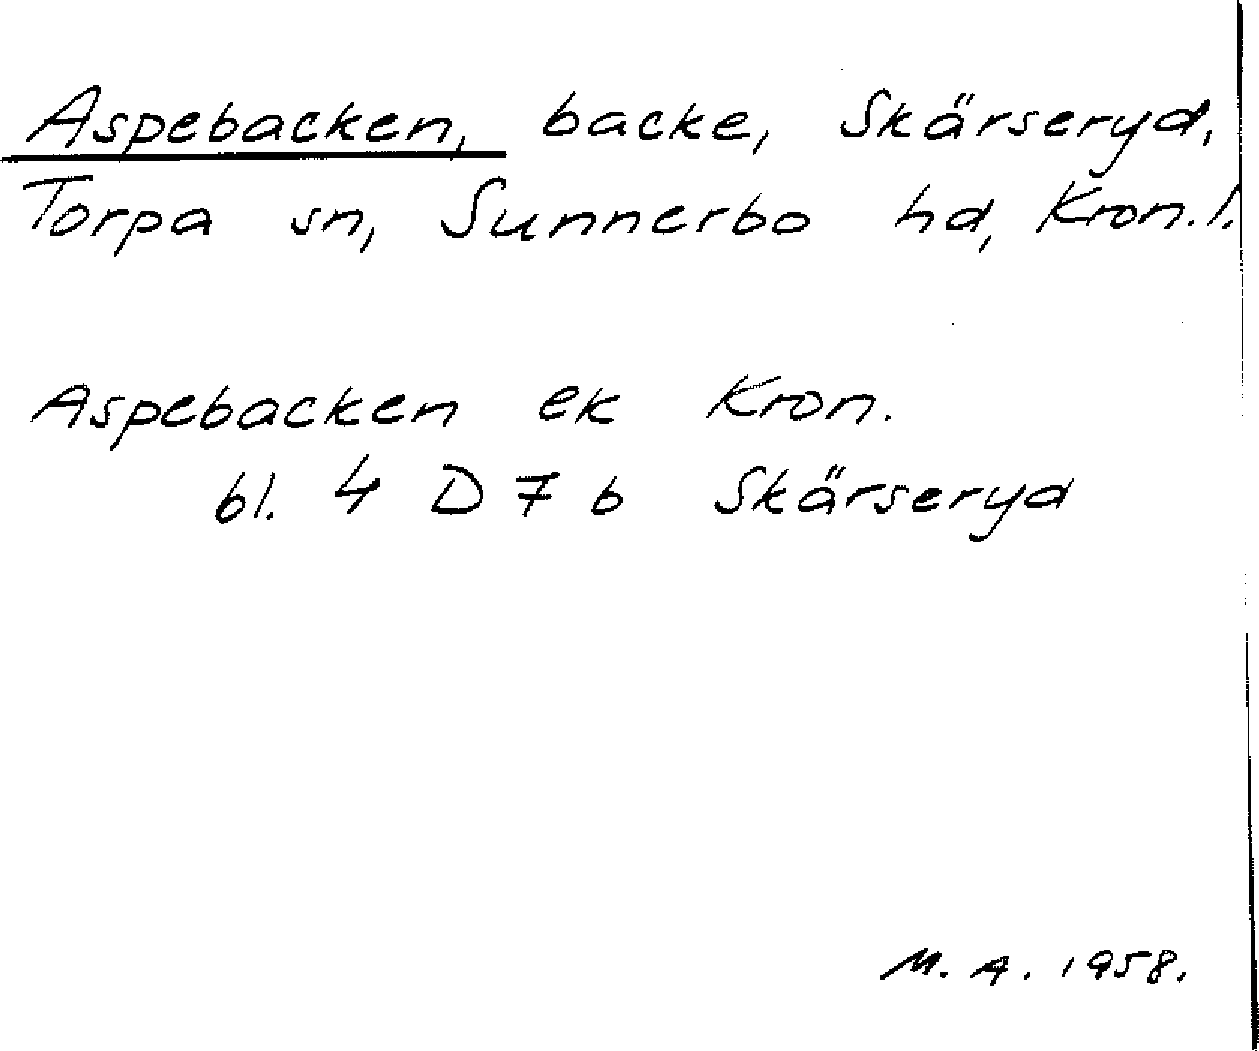 Aspebacken, backe, Skärseryd,
Torpa sn, Sunnerbo hd, Kron. l.
Aspebacken ek Kron.
bl. 4 D 7 b Skärseryd
M. A. 1958.